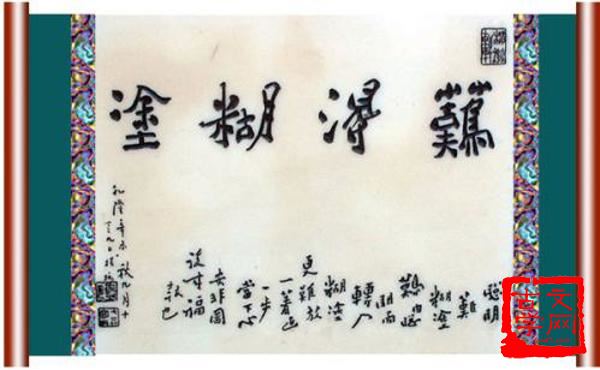 難得糊塗
聰明
難
糊塗
難由聰
明而
轉入
糊塗
更難放
一著退
一步
當下心
安非圖
後來福
報也
乾隆辛未秋九月十
九日板橋
古文学网